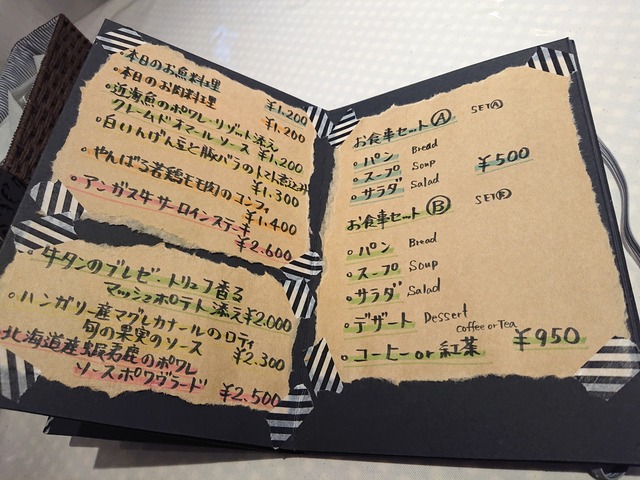 ・本日のお魚料理
¥1,200
・本日のお肉料理
¥1,200
・近海魚のポワレ・リゾット添え
クレームドオマールソース ¥1,200
・白いんげん豆と豚バラのトマト煮込み
¥1,300
・やんばる若鶏モモ肉のコンフィ
¥1,400
・アンガス牛サーロインステーキ
¥2,600
・牛タンのブレゼ・トリュフ香る
マッシュポテト添え ¥2,000
・ハンガリー産マグレカナールのロティ
旬の果実のソース ¥2,300
北海道産蝦夷鹿のポワレ
ソースポワヴラード ¥2,500
お食事セットⒶ SETⒶ
・パン Bread
・スープ Soup ¥500
・サラダ Salad
お食事セットⒷ SETⒷ
・パン Bread
・スープ Soup
・サラダ Salad
・デザート Dessert
coffee or Tea
・コーヒー or 紅茶 ¥950